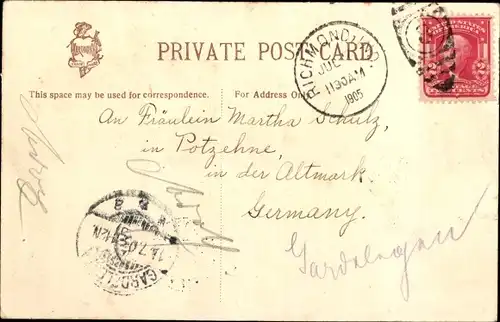 PRIVATE POST CARD
This space may be used for correspondence.
For Address Only.
RICHMOND, IND.
1130AM
1905
UNITED STATES
OF AMERICA
2
An Fräulein Martha Schulz,
in Potzehne,
in der Altmark.
Germany.
Gardelegen